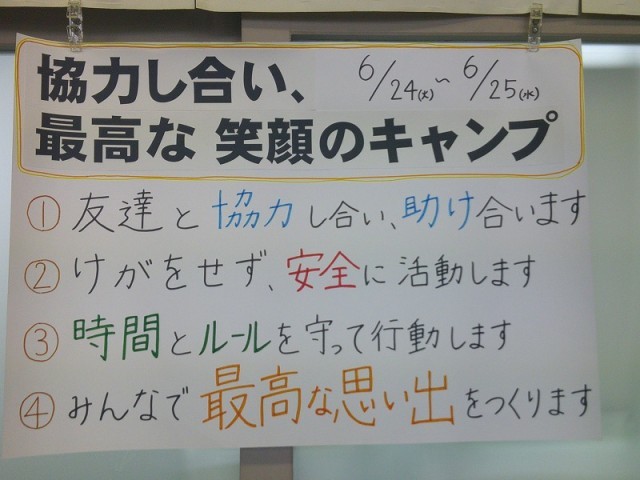 協力し合い、 6/24(火)~6/25(水)
最高な 笑顔のキャンプ
① 友達と協力し合い、助け合います
② けがをせず、安全に活動します
③ 時間とルールを守って行動します
④ みんなで最高な思い出をつくります